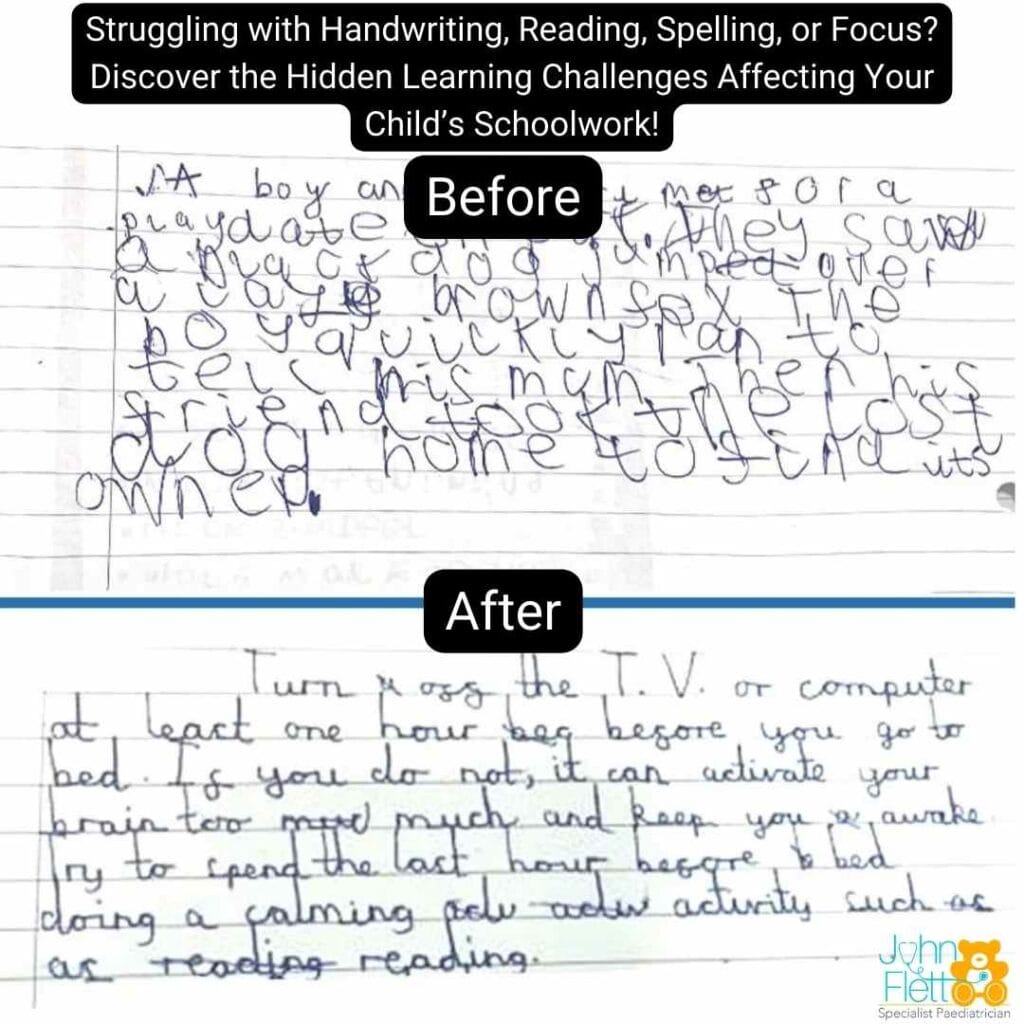 Struggling with Handwriting, Reading, Spelling, or Focus?
Discover the Hidden Learning Challenges Affecting Your
Child's Schoolwork!
Before
A boy an met for a
playdate they saw
a black dog jumped over
a brown fox The
boy quickly ran to
tell his mum Then his
friend took the lost
dog home to find its
owner.
After
Turn off the T.V. or computer
at least one hour bef before you go to
bed. If you do not, it can activate your
brain too much and keep you a awake.
Try to spend the last hour before b bed
doing a calming adv activity such as
as reading reading.
John
Flett
Specialist Paediatrician